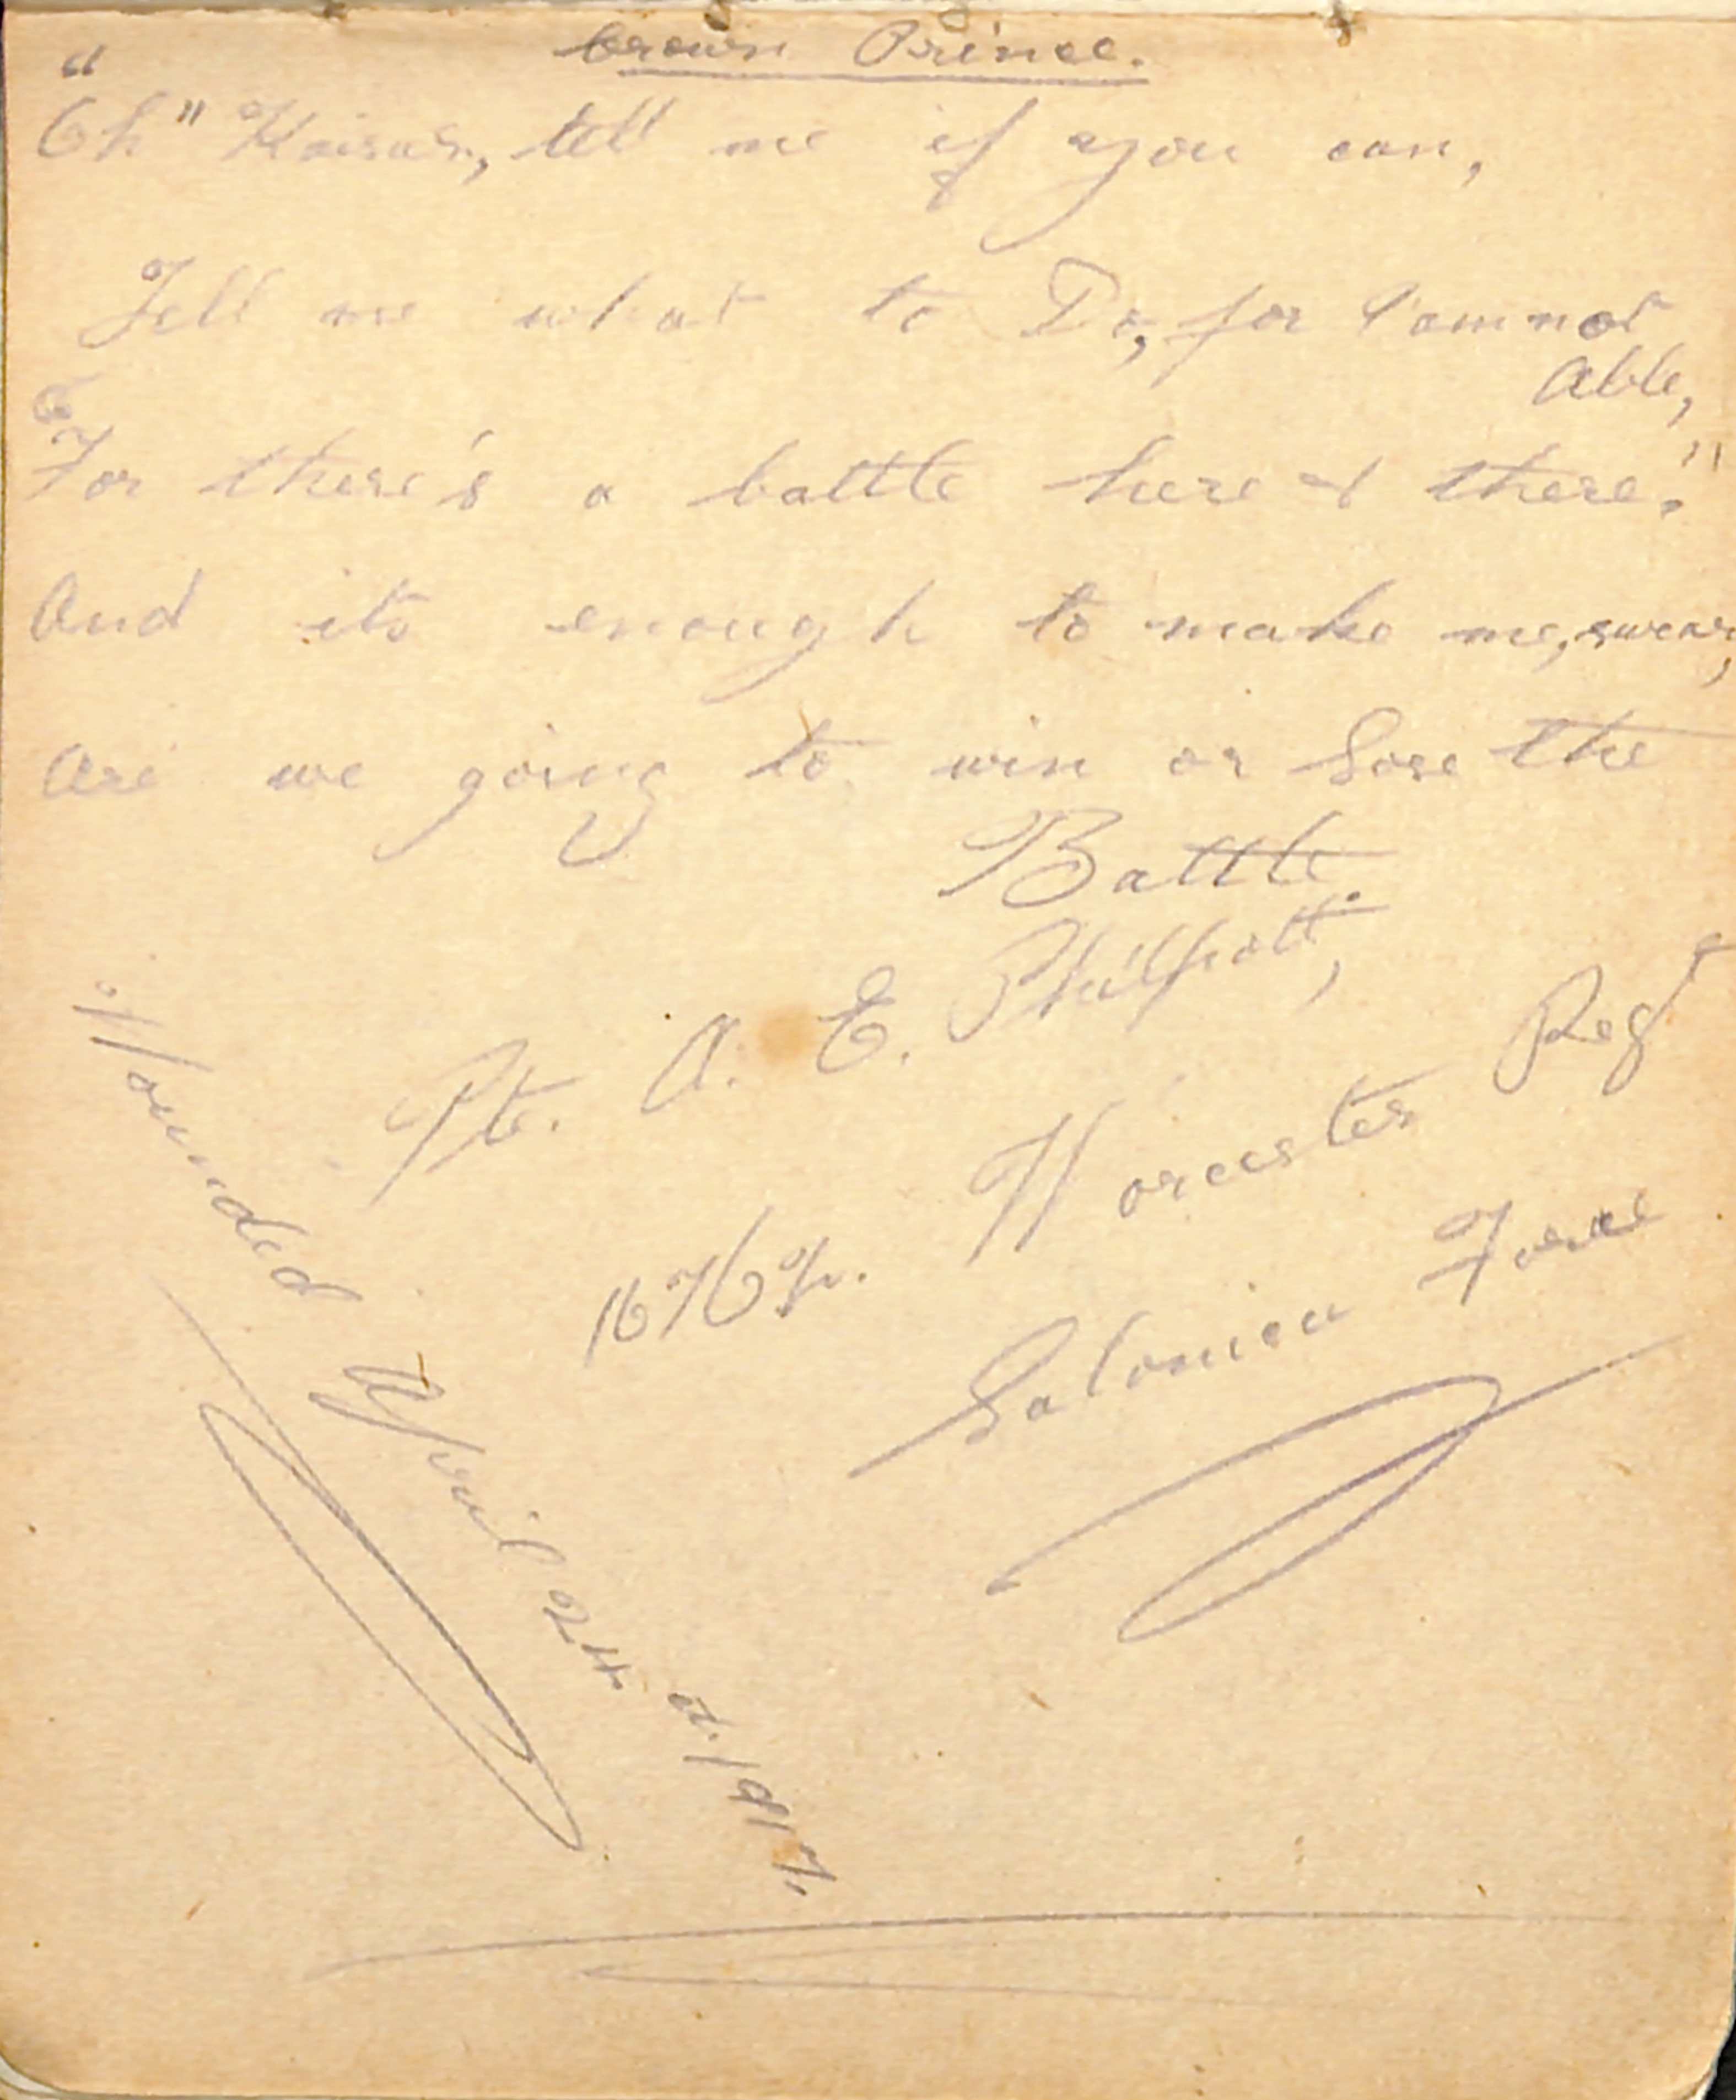 Crown Prince.
"Oh" Kaiser, tell me if you can,
Tell me what to Do, for I am not
Able,
For there's a battle here & there."
And its enough to make me, swear,
Are we going to win or Lose the
Battle.
Pte. A. E. Philpott,
Worcester Regt
Salonica Force
Wounded April 24th. 1917.